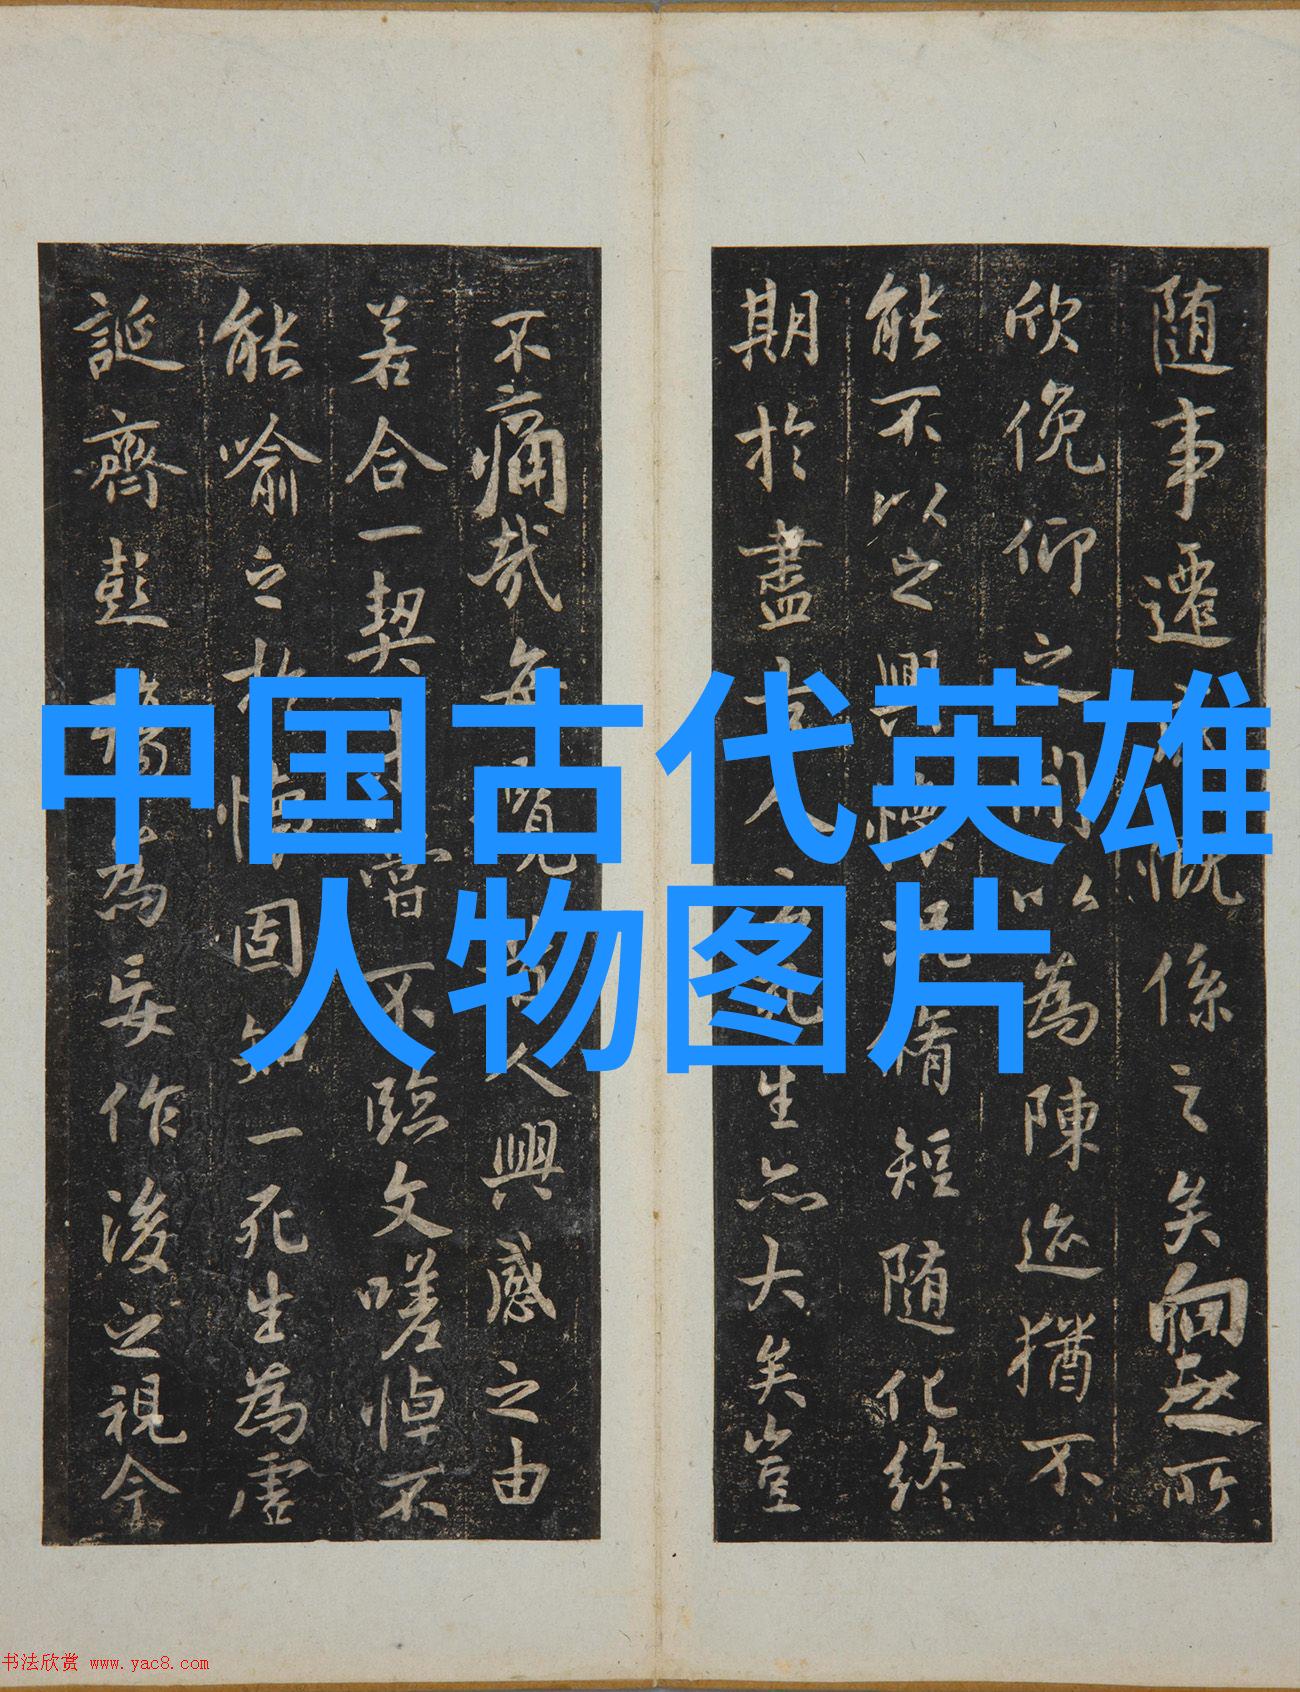 中国古代英雄
人物图片
随事遷慨係之矣向之所
欣俛仰之閒以為陳迹猶不
能不以之興懷況脩短随化終
期於盡古人云死生亦大矣豈
不痛哉每覽昔人興感之由
若合一契嘗不臨文嗟悼不
能喻之於懷固知一死生為虛
誕齊彭殤為妄作後之視今
书法欣赏 www.yac8.com